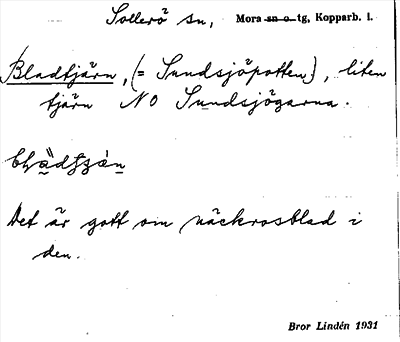 Sollerö sn, Mora sn o. tg, Kopparb. l.
Bladtjärn, (= Sundsjöpotten), liten
tjärn NO Sundsjögarna.
Det är gott om näckrosblad i
den.
Bror Lindén 1931